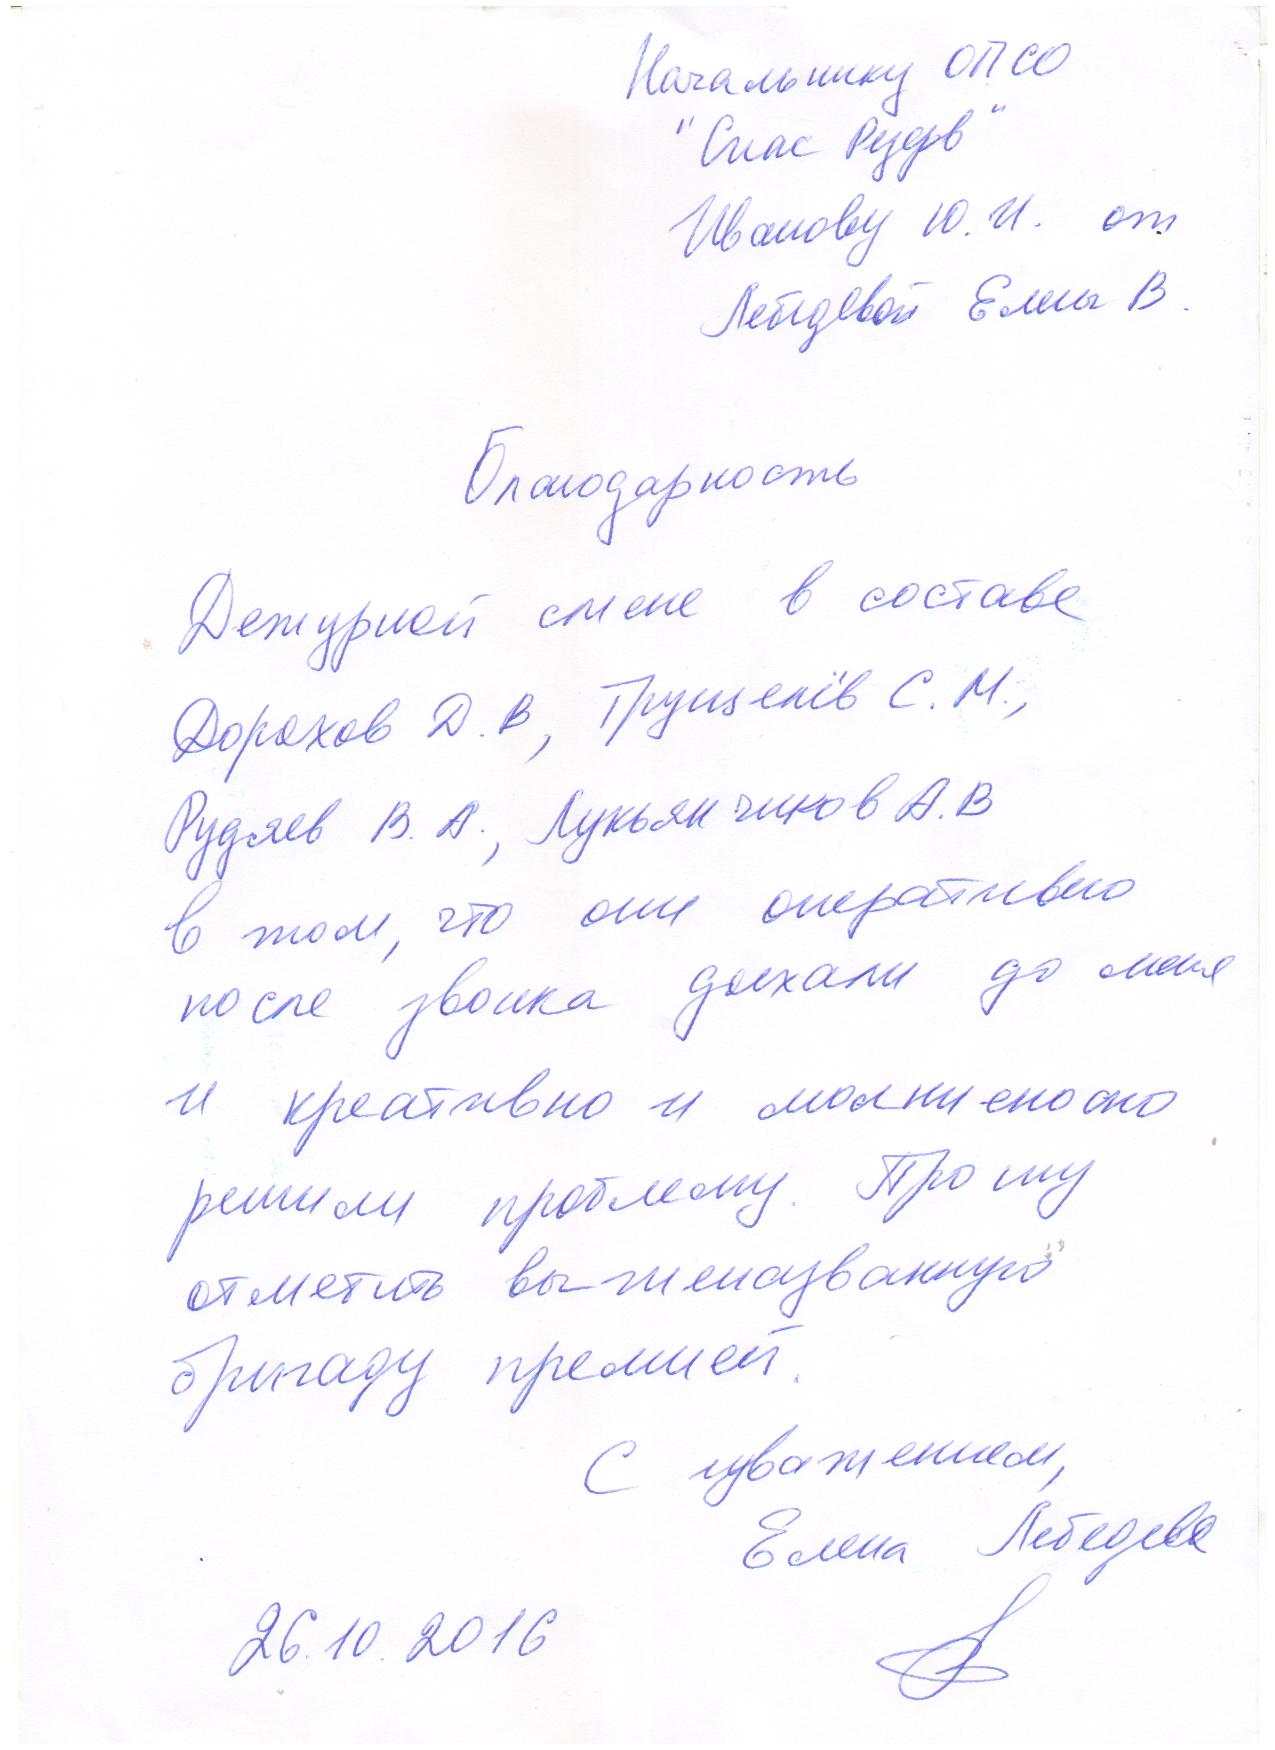 Начальнику ОПСО
"Спас Резерв"
Иванову Ю.И. от
Лебедевой Елены В.
Благодарность
Дежурной смене в составе
Дорохов Д.В, Грущелёв С.М.,
Рудяев В.А., Лукьянчиков А.В
в том, что они оперативно
после звонка доехали до меня
и креативно и молниеносно
решили проблему. Прошу
отметить вышеназванную
бригаду премией.
С уважением,
Елена Лебедева
26.10.2016